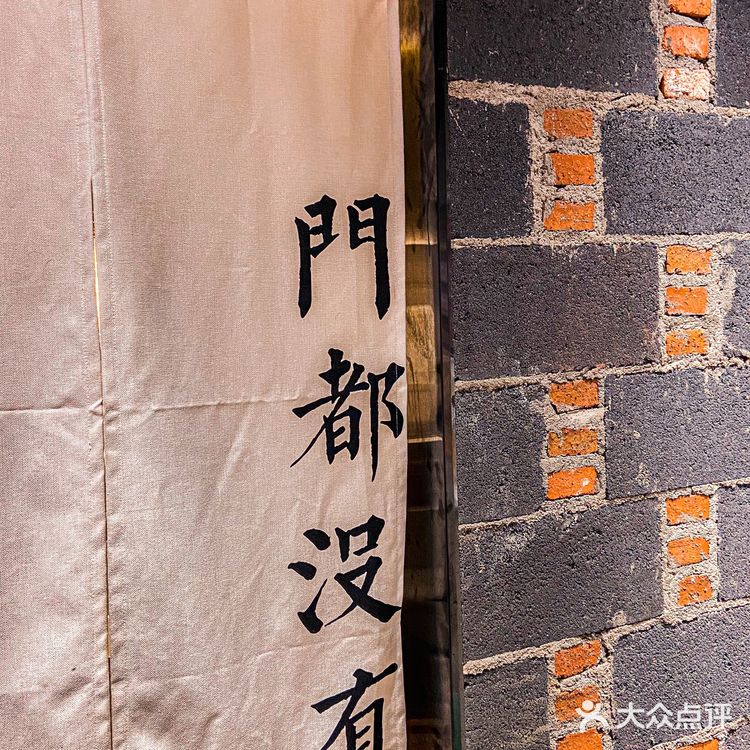 門都没有
大众点评